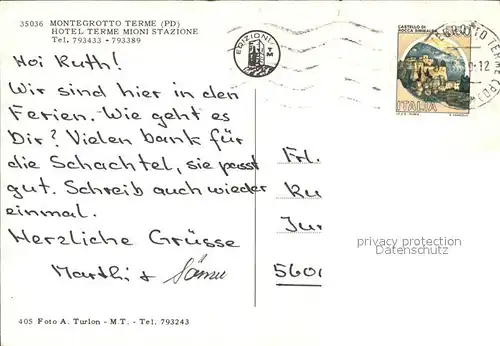 35036 MONTEGROTTO TERME (PD)
HOTEL TERME MIONI STAZIONE
Tel. 793433 - 793389
EDIZIONI
TM
CASTELLO DI
ROCCA SINIBALDA
ITALIA
Hoi Ruth!
Wir sind hier in den
Ferien. Wie geht es
Dir? Vielen bank für
die Schachtel, sie passt
gut. Schreib auch wieder
einmal.
Herzliche Grüsse
Marthi + Sämu
Frl.
Ru
Jur
5600
privacy protection
Datenschutz
405 Foto A. Turlon - M.T. - Tel. 793243